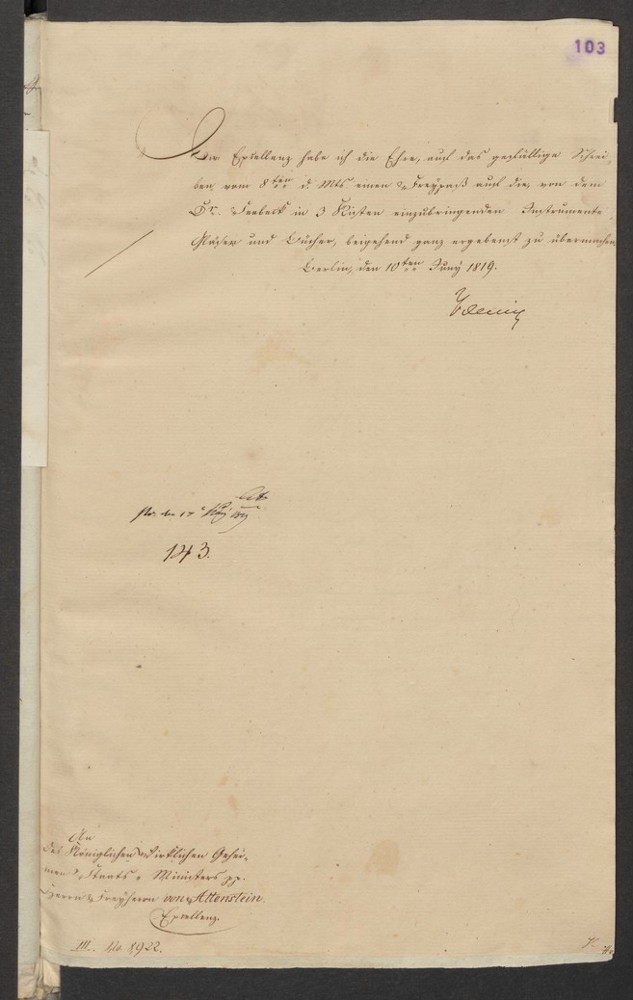 103
Ew. Excellenz habe ich die Ehre, auf das gefällige Schrei-
ben vom 8ten d. Mts einen Freypaß auf die, von dem
Dr. Seebeck in 3 Kisten einzubringenden Instrumente,
Gläser und Bücher, beigehend ganz ergebenst zu übermachen.
Berlin, den 10ten Juny 1819.
143.
An
des Königlichen Wirklichen Gehei-
men Staats-Ministers pp.
Herrn Freyherrn von Altenstein
Excellenz.
III. No 8922.